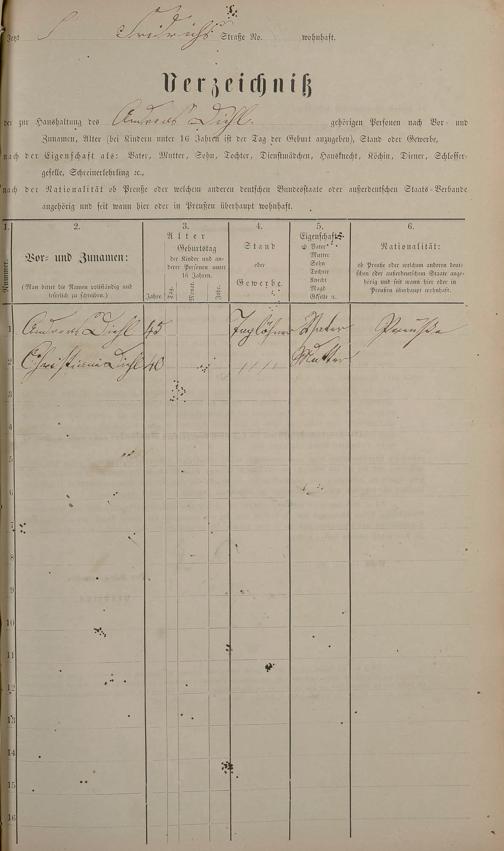 Jetzt Fridrichs Straße No. wohnhaft.
Verzeichniß
der zur Haushaltung des Andreas Diehl gehörigen Personen nach Vor- und
Zunamen, Alter (bei Kindern unter 16 Jahren ist der Tag der Geburt anzugeben), Stand oder Gewerbe,
nach der Eigenschaft als: Vater, Mutter, Sohn, Tochter, Dienstmädchen, Hausknecht, Köchin, Diener, Schlosser-
geselle, Schreinerlehrling ꝛc.,
nach der Nationalität ob Preuße oder welchem anderen deutschen Bundesstaate oder außerdeutschen Staats-Verbande
angehörig und seit wann hier oder in Preußen überhaupt wohnhaft.
1. 2. 3. 4. 5. 6.
Nummer.
Vor- und Zunamen:
(Man bittet die Namen vollständig und
leserlich zu schreiben.)
Alter
Geburtstag
der Kinder und an-
derer Personen unter
16 Jahren.
Jahre. Tag. Monat. Jahr.
Stand
oder
Gewerbe.
Eigenschaft:
Vater
Mutter
Sohn
Tochter
Knecht
Magd
Geselle ꝛc.
Nationalität:
ob Preuße oder welchem anderen deut-
schen oder außerdeutschen Staate ange-
hörig und seit wann hier oder in
Preußen überhaupt wohnhaft.
1 Andreas Diehl 45 Taglöhner Vater Preuße
2 Christiane Diehl 40 " " " " Mutter
3
4
5
6
7
8
9
10
11
12
13
14
15
16